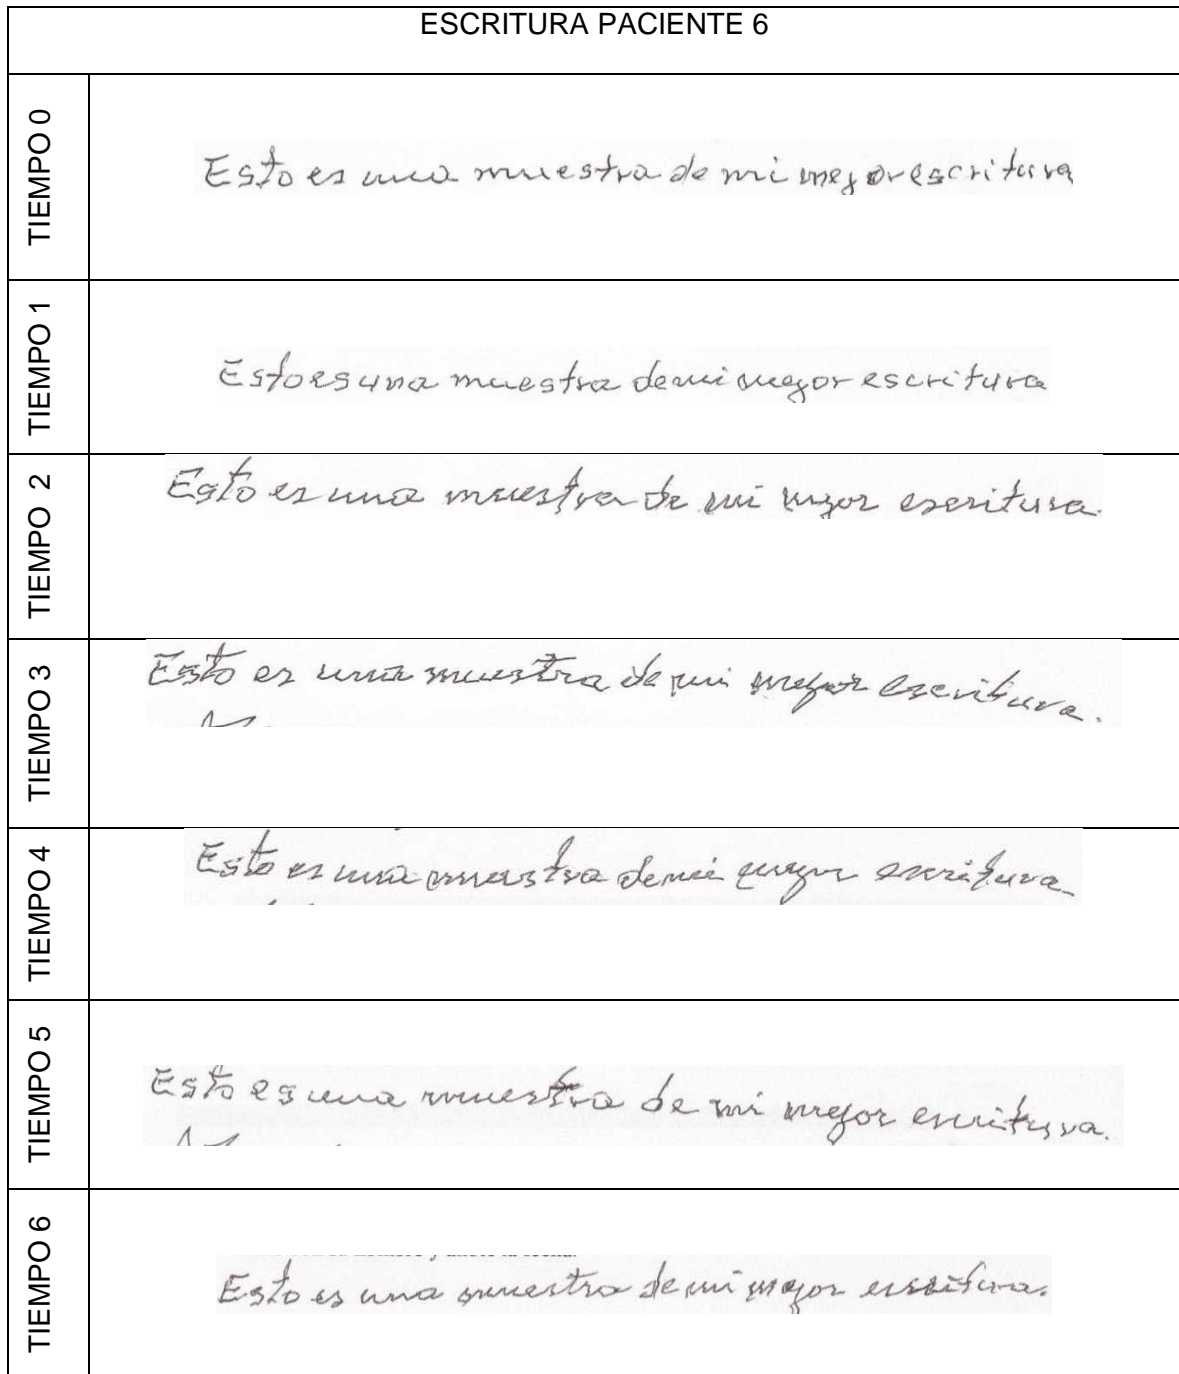 ESCRITURA PACIENTE 6
TIEMPO 0
Esto es una muestra de mi mejor escritura
TIEMPO 1
Esto es una muestra de mi mejor escritura
TIEMPO 2
Esto es una muestra de mi mejor escritura.
TIEMPO 3
Esto es una muestra de mi mejor escritura.
TIEMPO 4
Esto es una muestra de mi mejor escritura
TIEMPO 5
Esto es una muestra de mi mejor escritura.
TIEMPO 6
Esto es una muestra de mi mejor escritura.